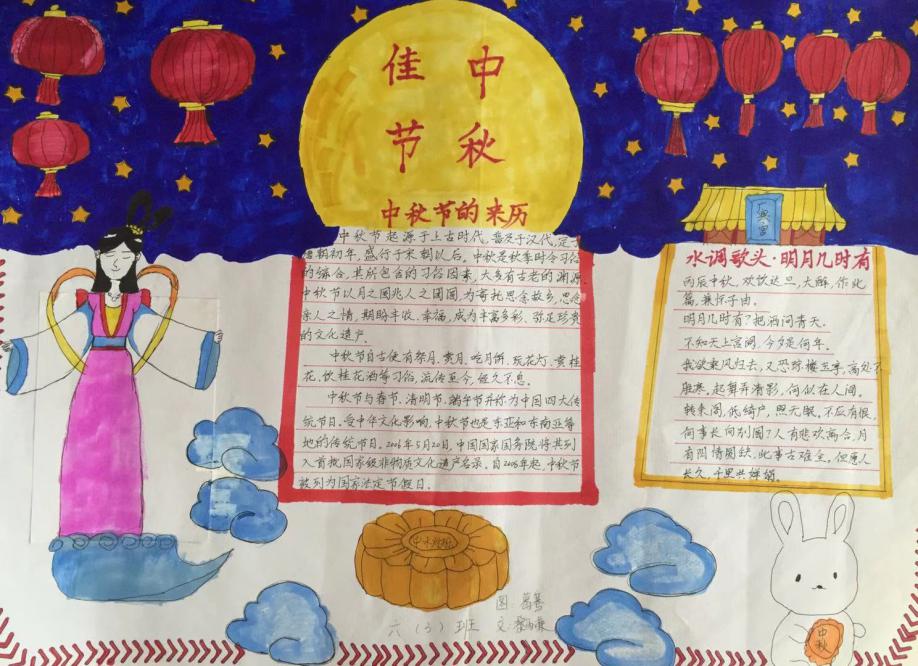 中秋
佳节
中秋节的来历
中秋节起源于上古时代,普及于汉代,定于
唐朝初年,盛行于宋朝以后。中秋是秋季时令习俗
的综合,其所包含的习俗因素,大多有古老的渊源。
中秋节以月之圆兆人之团圆,为寄托思念故乡,思念
亲人之情,期盼丰收、幸福,成为丰富多彩、弥足珍贵
的文化遗产。
中秋节自古便有祭月、赏月、吃月饼、玩花灯、赏桂
花、饮桂花酒等习俗,流传至今,经久不息。
中秋节与春节、清明节、端午节并称为中国四大传
统节日。受中华文化影响,中秋节也是东亚和东南亚等
地的传统节日。2006年5月20日,中国国家国务院将其列
入首批国家级非物质文化遗产名录。自2008年起,中秋节
被列为国家法定节假日。
广寒宫
水调歌头·明月几时有
丙辰中秋,欢饮达旦,大醉,作此
篇,兼怀子由。
明月几时有?把酒问青天。
不知天上宫阙,今夕是何年。
我欲乘风归去,又恐琼楼玉宇,高处不
胜寒。起舞弄清影,何似在人间。
转朱阁,低绮户,照无眠。不应有恨,
何事长向别圆?人有悲欢离合,月
有阴晴圆缺,此事古难全。但愿人
长久,千里共婵娟。
中秋
六(3)班
图:葛
文: